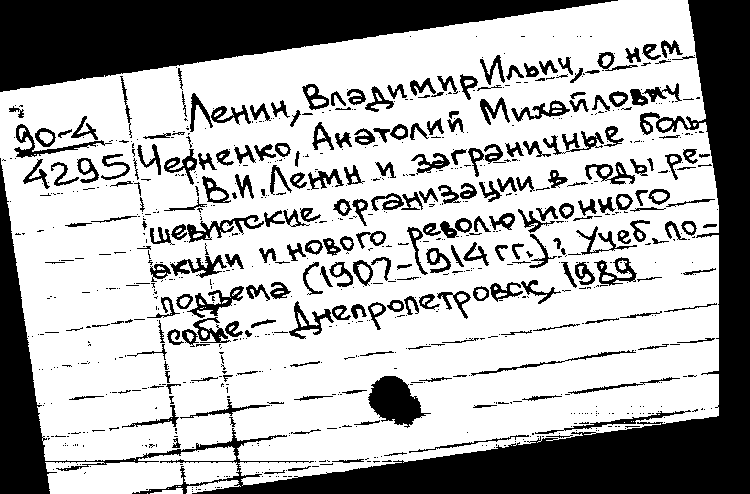 Ленин, Владимир Ильич, о нем
90-4
4295
Черненко, Анатолий Михайлович
В.И. Ленин и заграничные боль-
шевистские организации в годы ре-
акции и нового революционного
подъема (1907-1914 гг.): Учеб. по-
собие. — Днепропетровск, 1989